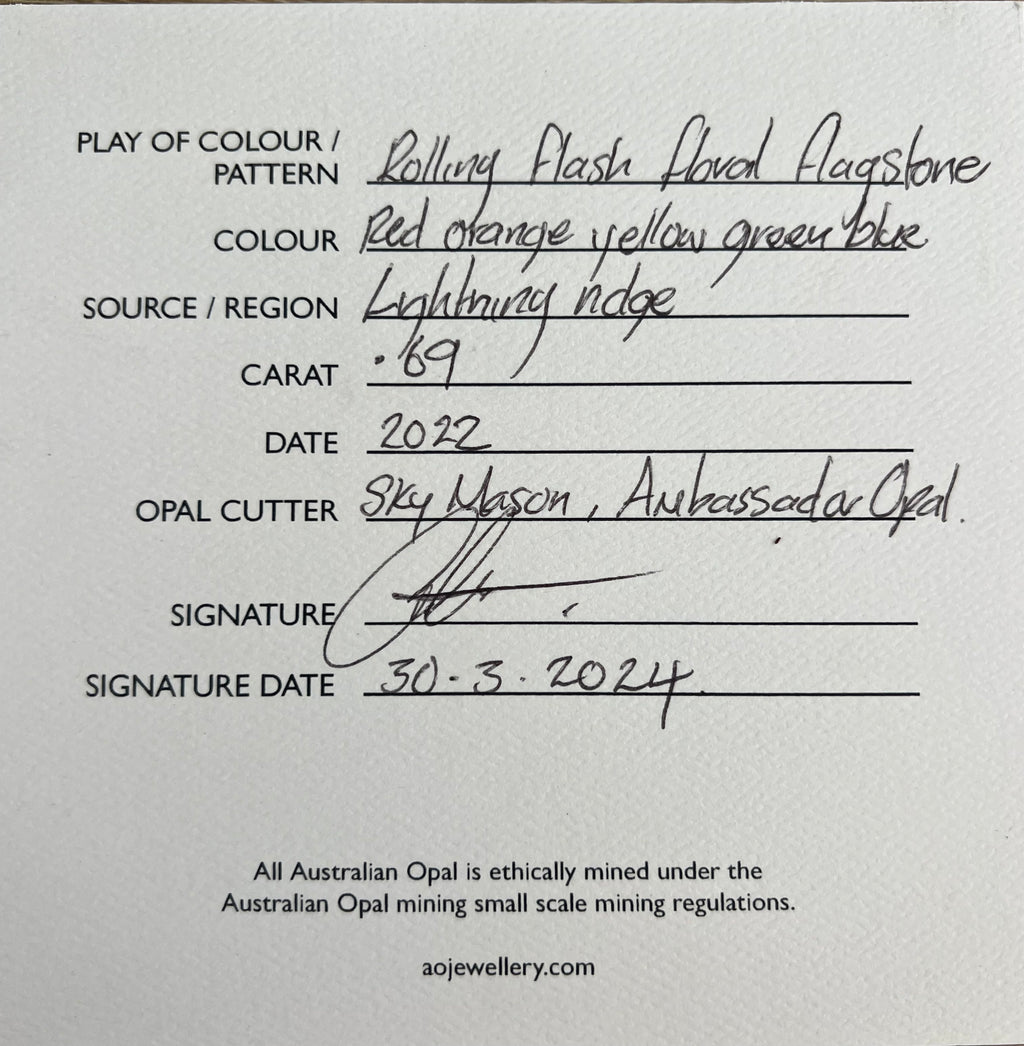 PLAY OF COLOUR / PATTERN Rolling flash floral flagstone
COLOUR Red orange yellow green blue
SOURCE / REGION Lightning ridge
CARAT .69
DATE 2022
OPAL CUTTER Sky Mason, Ambassador Opal.
SIGNATURE
SIGNATURE DATE 30.3.2024.
All Australian Opal is ethically mined under the
Australian Opal mining small scale mining regulations.
aojewellery.com